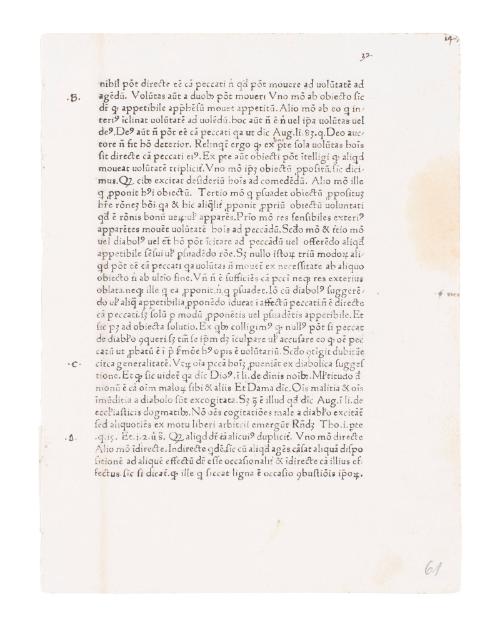 32
nihil põt directe eẽ cã peccati ñ qđ põt mouere ad uolũtatẽ ad
.B. agẽdũ. Volũtas aũt a duobꝫ põt moueri Vno mõ ab obiecto sic
dr̃ ꝙ appetibile apphẽsũ mouet appetitũ. Alio mõ ab eo q in⸗
teriꝰ ĩclinat uolũtatẽ ad uolẽdũ. hoc aũt ñ ẽ ñ uel ip̃a uolũtas uel
deꝰ. Deꝰ aũt ñ põt eẽ cã peccati qa ut dic Aug. li. 83. q. Deo auc⸗
tore ñ fit hõ deterior. Relinqꞇ̃ ergo ꝙ ex pte sola uolũtas hoĩs
sit directe cã peccati eiꝰ. Ex pte aũt obiecti põt ĩtelligi ꝙ aliqđ
moueat uolũtatẽ tripliciꞇ̃. Vno mõ ip̃ꝫ obiectũ ꝓpositũ. sic dici⸗
mus. Qꝫ cibꝰ excitat desideriũ hoĩs ad comedẽdũ. Alio mõ ille
q ꝓponit hꝰi obiectũ. Tertio mõ q psuadet obiectũ ꝓpositũ
hr̃e rõneꝫ boĩ qa & hic aliqliꞇ̃ ꝓponit ꝓpriũ obiectũ uoluntati
qđ ẽ rõnis bonũ ueꝝ uꝉ apparẽs. Prĩo mõ res sensibiles exteriꝰ
apparẽtes mouẽt uolũtatẽ hoĩs ad peccãdũ. Scđo mõ & tĩo mõ
uel diabolꝰ uel eꞇ̃ hõ põt ĩcitare ad peccãdũ uel offerẽdo aliqđ
appetibile sẽsui uꝉ psuadẽdo rõe. Sꝫ nullo istoꝝ triũ modoꝝ ali⸗
qđ põt eẽ cã peccati qa uolũtas ñ mouet ex necessitate ab aliquo
obiecto ñ ab ultĩo fine. Vñ ñ ẽ sufficiẽs cã pcci neqꝫ res exterius
oblata. neqꝫ ille q eã ꝓponit. ñ q psuadet. Iõ cũ diabolꝰ suggerẽ⸗
do uꝉ aliqꝭ appetibilia ꝓponẽdo iducat i affectũ peccati. ñ ẽ directe
cã peccati. sꝫ solũ p modũ ꝓponẽtis uel psuadẽtis appetibile. Et
sic pꝫ ad obiecta solutio. Ex qbꝰ colligimꝰ ꝙ nullꝰ põt si peccat
de diabło ꝯqueri. sꝫ tñ se ip̃m dꝫ ĩculpare uꝉ accusare eo ꝙ oẽ pec
catũ ut ꝓbatũ ẽ i p̃ kmõe hꝰ opis ẽ uolũtariũ. Scđo origit dubitatẽ
.C. circa generalitatẽ. Vtꝝ oĩa pccã hoĩꝫ, pueniãt ex diabolica sugges⸗
tione. Et ꝙ sic uideꞇ̃ qa dic Dioꝰ. i li. de dinis noĩbꝰ. Mꝉtitudo đ
monũ ẽ cã oĩm maloꝝ sibi & aliis Et Dama dic. Ois malitia & oĩs
ĩmũditia a diabolo sũt excogitata. Sꝫ 9ᷓ ẽ illud qđ dic Aug. i li. de
ecclꝰiasticis dogmatibꝰ. Nõ oẽs cogitatiões male a diabło excitãꞇ̃
sed aliquotiẽs ex motu liberi arbitrii emergũt Rñdꝫ Tho. i. pte
.D. .q. 15. Et. 1. 2. ũ 8. Qꝫ aliqđ dr̃ cã alicuiꝰ dupliciꞇ̃. Vno mõ directe
Alio mõ ĩdirecte. Indirecte qdẽ. sic cũ aliqđ agẽs cãsat aliquã dispo
sitionẽ ad aliquẽ effectũ dr̃ esse occasionaliꞇ̃ & ĩdirecte cã illius ef⸗
fectus. sic si dicat. ꝙ ille q siccat ligna ẽ occasio ꝯbustiõis ip̃oꝝ.
61